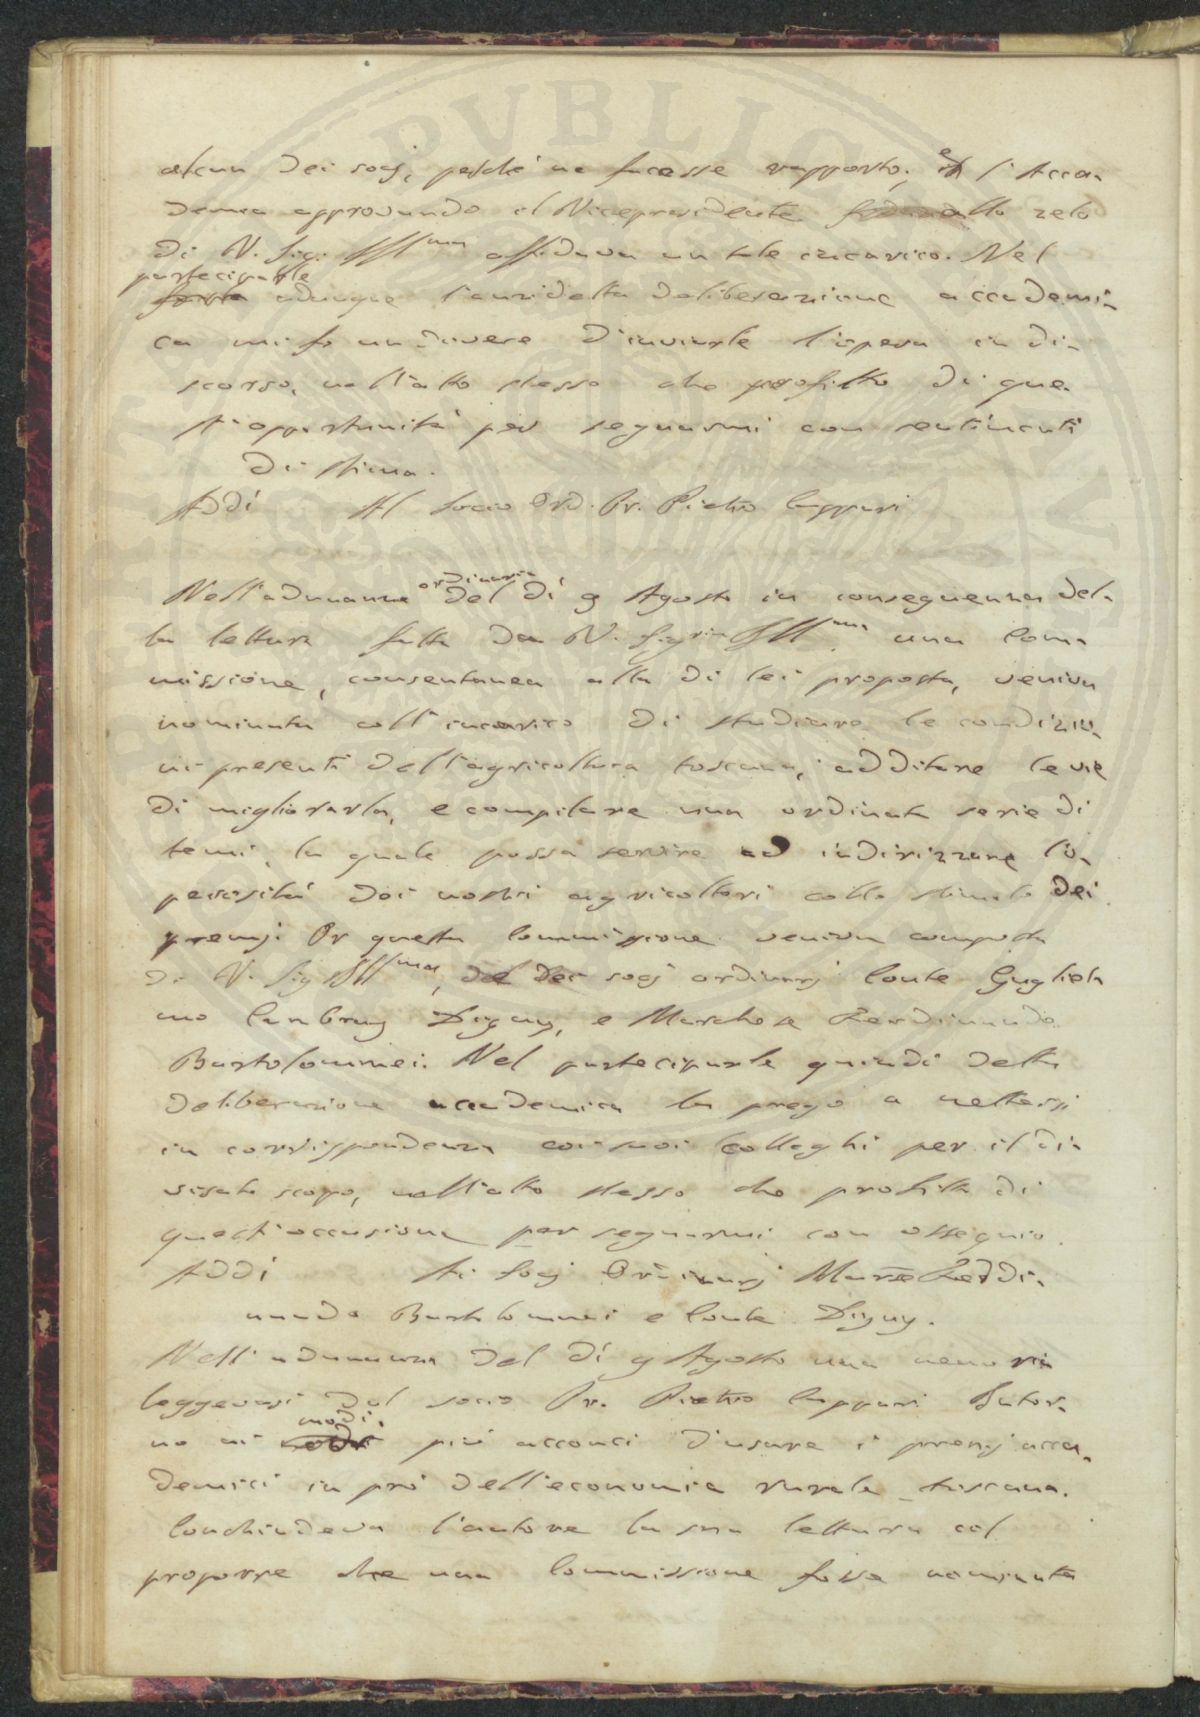 alcun dei socj, perchè ne facesse rapporto; e l'Acca-
demia approvando il Vicepresidente allo zelo
di V. Sig. Ill^ma affidava un tale incarico. Nel
partecipable
adunque l'anzidetta deliberazione accademi-
ca mi fo un dovere d'inviarle l'opera in di-
scorso, nell'atto stesso che profitto di que-
st'opportunità per segnarmi con sentimenti
di stima.
Addì Al Socio Ord. Pr. Pietro Cuppari
Nell'adunanza ordinaria del dì 9 Agosto in conseguenza del-
la lettura fatta da V. Sigria Ill^ma una Com-
missione, consentanea alla di lei proposta, veniva
nominata coll'incarico di studiare le condizio-
ni presenti dell'agricoltura toscana, additare le vie
di migliorarla, e compilare una ordinata serie di
temi, la quale possa servire ad indirizzare l'o-
perosità dei nostri agricoltori collo stimolo dei
premj. Or questa Commissione veniva composta
di V. Sig Ill^ma, dei socj ordinarj Conte Gugliel-
mo Cambray Digny, e Marchese Ferdinando
Bartolommei. Nel parteciparle quindi detta
deliberazione accademica la prego a mettersi
in corrispondenza coi suoi Colleghi per il di-
visato scopo, nell'atto stesso che profitto di
quest'occasione per segnarmi con ossequio.
Addì Ai Socj Ordinarj Marse Ferdi-
nando Bartolommei e Conte Digny.
Nell'adunanza del dì 9 Agosto una memoria
leggevasi dal socio Pr. Pietro Cuppari Intor-
no ai modi più acconci d'usare i premj acca-
demici in prò dell'economia rurale toscana.
Conchiudeva l'autore la sua lettura col
proporre che una Commissione fosse nominata